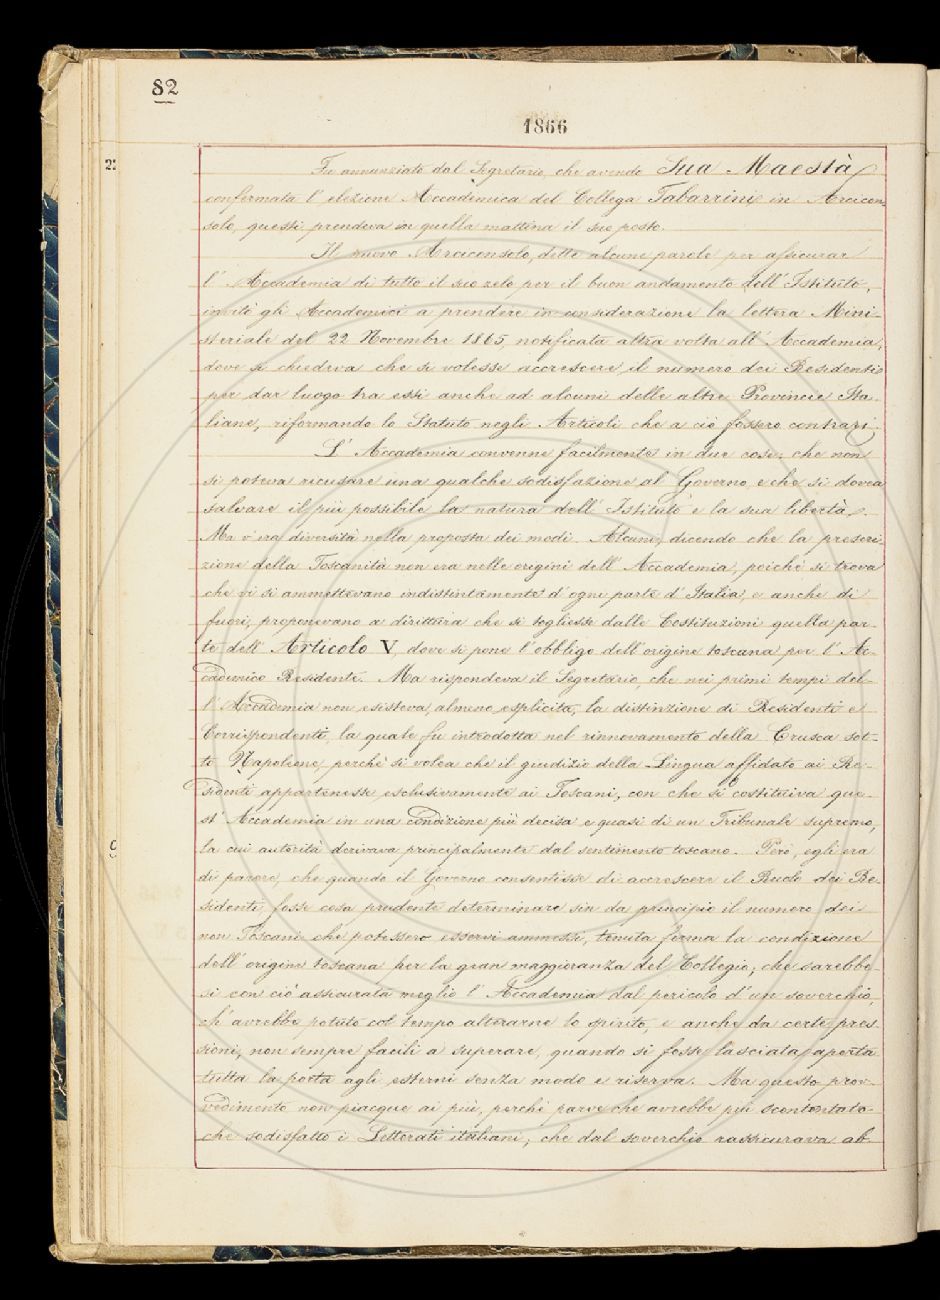 82
1866
Fu annunziato dal Segretario, che avendo Sua Maestà
confermata l' elezione Accademica del Collega Tabarrini in Arcicon-
solo, questi prendeva in quella mattina il suo posto.
Il nuovo Arciconsolo, dette alcune parole per assicurar
l' Accademia di tutto il suo zelo per il buon andamento dell' Istituto,
invitò gli Accademici a prendere in considerazione la lettera Mini-
steriale del 22 Novembre 1865, notificata altra volta all' Accademia,
dove si chiedeva che si volesse accrescere il numero dei Residenti
per dar luogo tra essi anche ad alcuni delle altre Provincie Ita-
liane, riformando lo Statuto negli Articoli che a ciò fossero contrari.
L' Accademia convenne facilmente in due cose; che non
si poteva ricusare una qualche sodisfazione al Governo, e che si dovea
salvare il più possibile la natura dell' Istituto e la sua libertà.
Ma v' era diversità nella proposta dei modi. Alcuni, dicendo che la prescri-
zione della Toscanità non era nelle origini dell' Accademia, poichè si trova
che vi si ammettevano indistintamente d' ogni parte d' Italia, e anche di
fuori, proponevano a dirittura che si togliesse dalle Costituzioni quella par-
te dell' Articolo V, dove si pone l' obbligo dell' origine toscana per l' Ac-
cademico Residente. Ma rispondeva il Segretario, che nei primi tempi del-
l' Accademia non esisteva, almeno esplicita, la distinzione di Residenti e
Corrispondenti, la quale fu introdotta nel rinnovamento della Crusca sot-
to Napoleone, perchè si volea che il giudizio della Lingua affidato ai Re-
sidenti appartenesse esclusivamente ai Toscani, con che si costituiva que-
st' Accademia in una condizione più decisa e quasi di un Tribunale supremo,
la cui autorità derivava principalmente dal sentimento toscano. Però, egli era
di parere, che quando il Governo consentisse di accrescere il Ruolo dei Re-
sidenti, fosse cosa prudente determinare sin da principio il numero dei
non Toscani che potessero esservi ammessi, tenuta ferma la condizione
dell' origine toscana per la gran maggioranza del Collegio; che sarebbe-
si con ciò assicurata meglio l' Accademia dal pericolo d' un soverchio,
ch' avrebbe potuto col tempo alterarne lo spirito, e anche da certe pres-
sioni, non sempre facili a superare, quando si fosse lasciata aperta
tutta la porta agli esterni senza modo e riserva. Ma questo prov-
vedimento non piacque ai più, perchè parve che avrebbe più scontentato
che sodisfatto i Letterati italiani; che dal soverchio rassicurava ab-